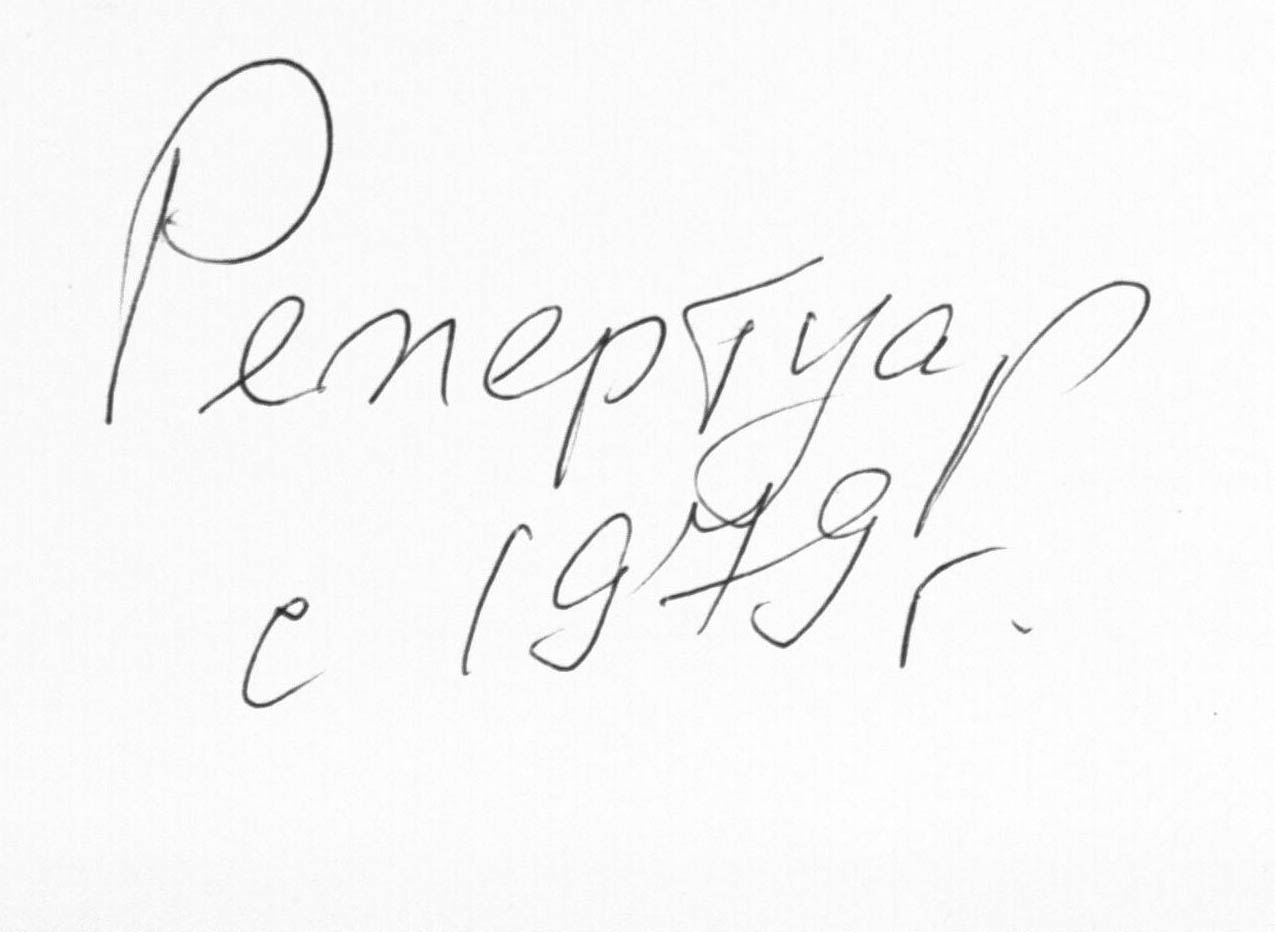 Репертуар
с 1979 г.